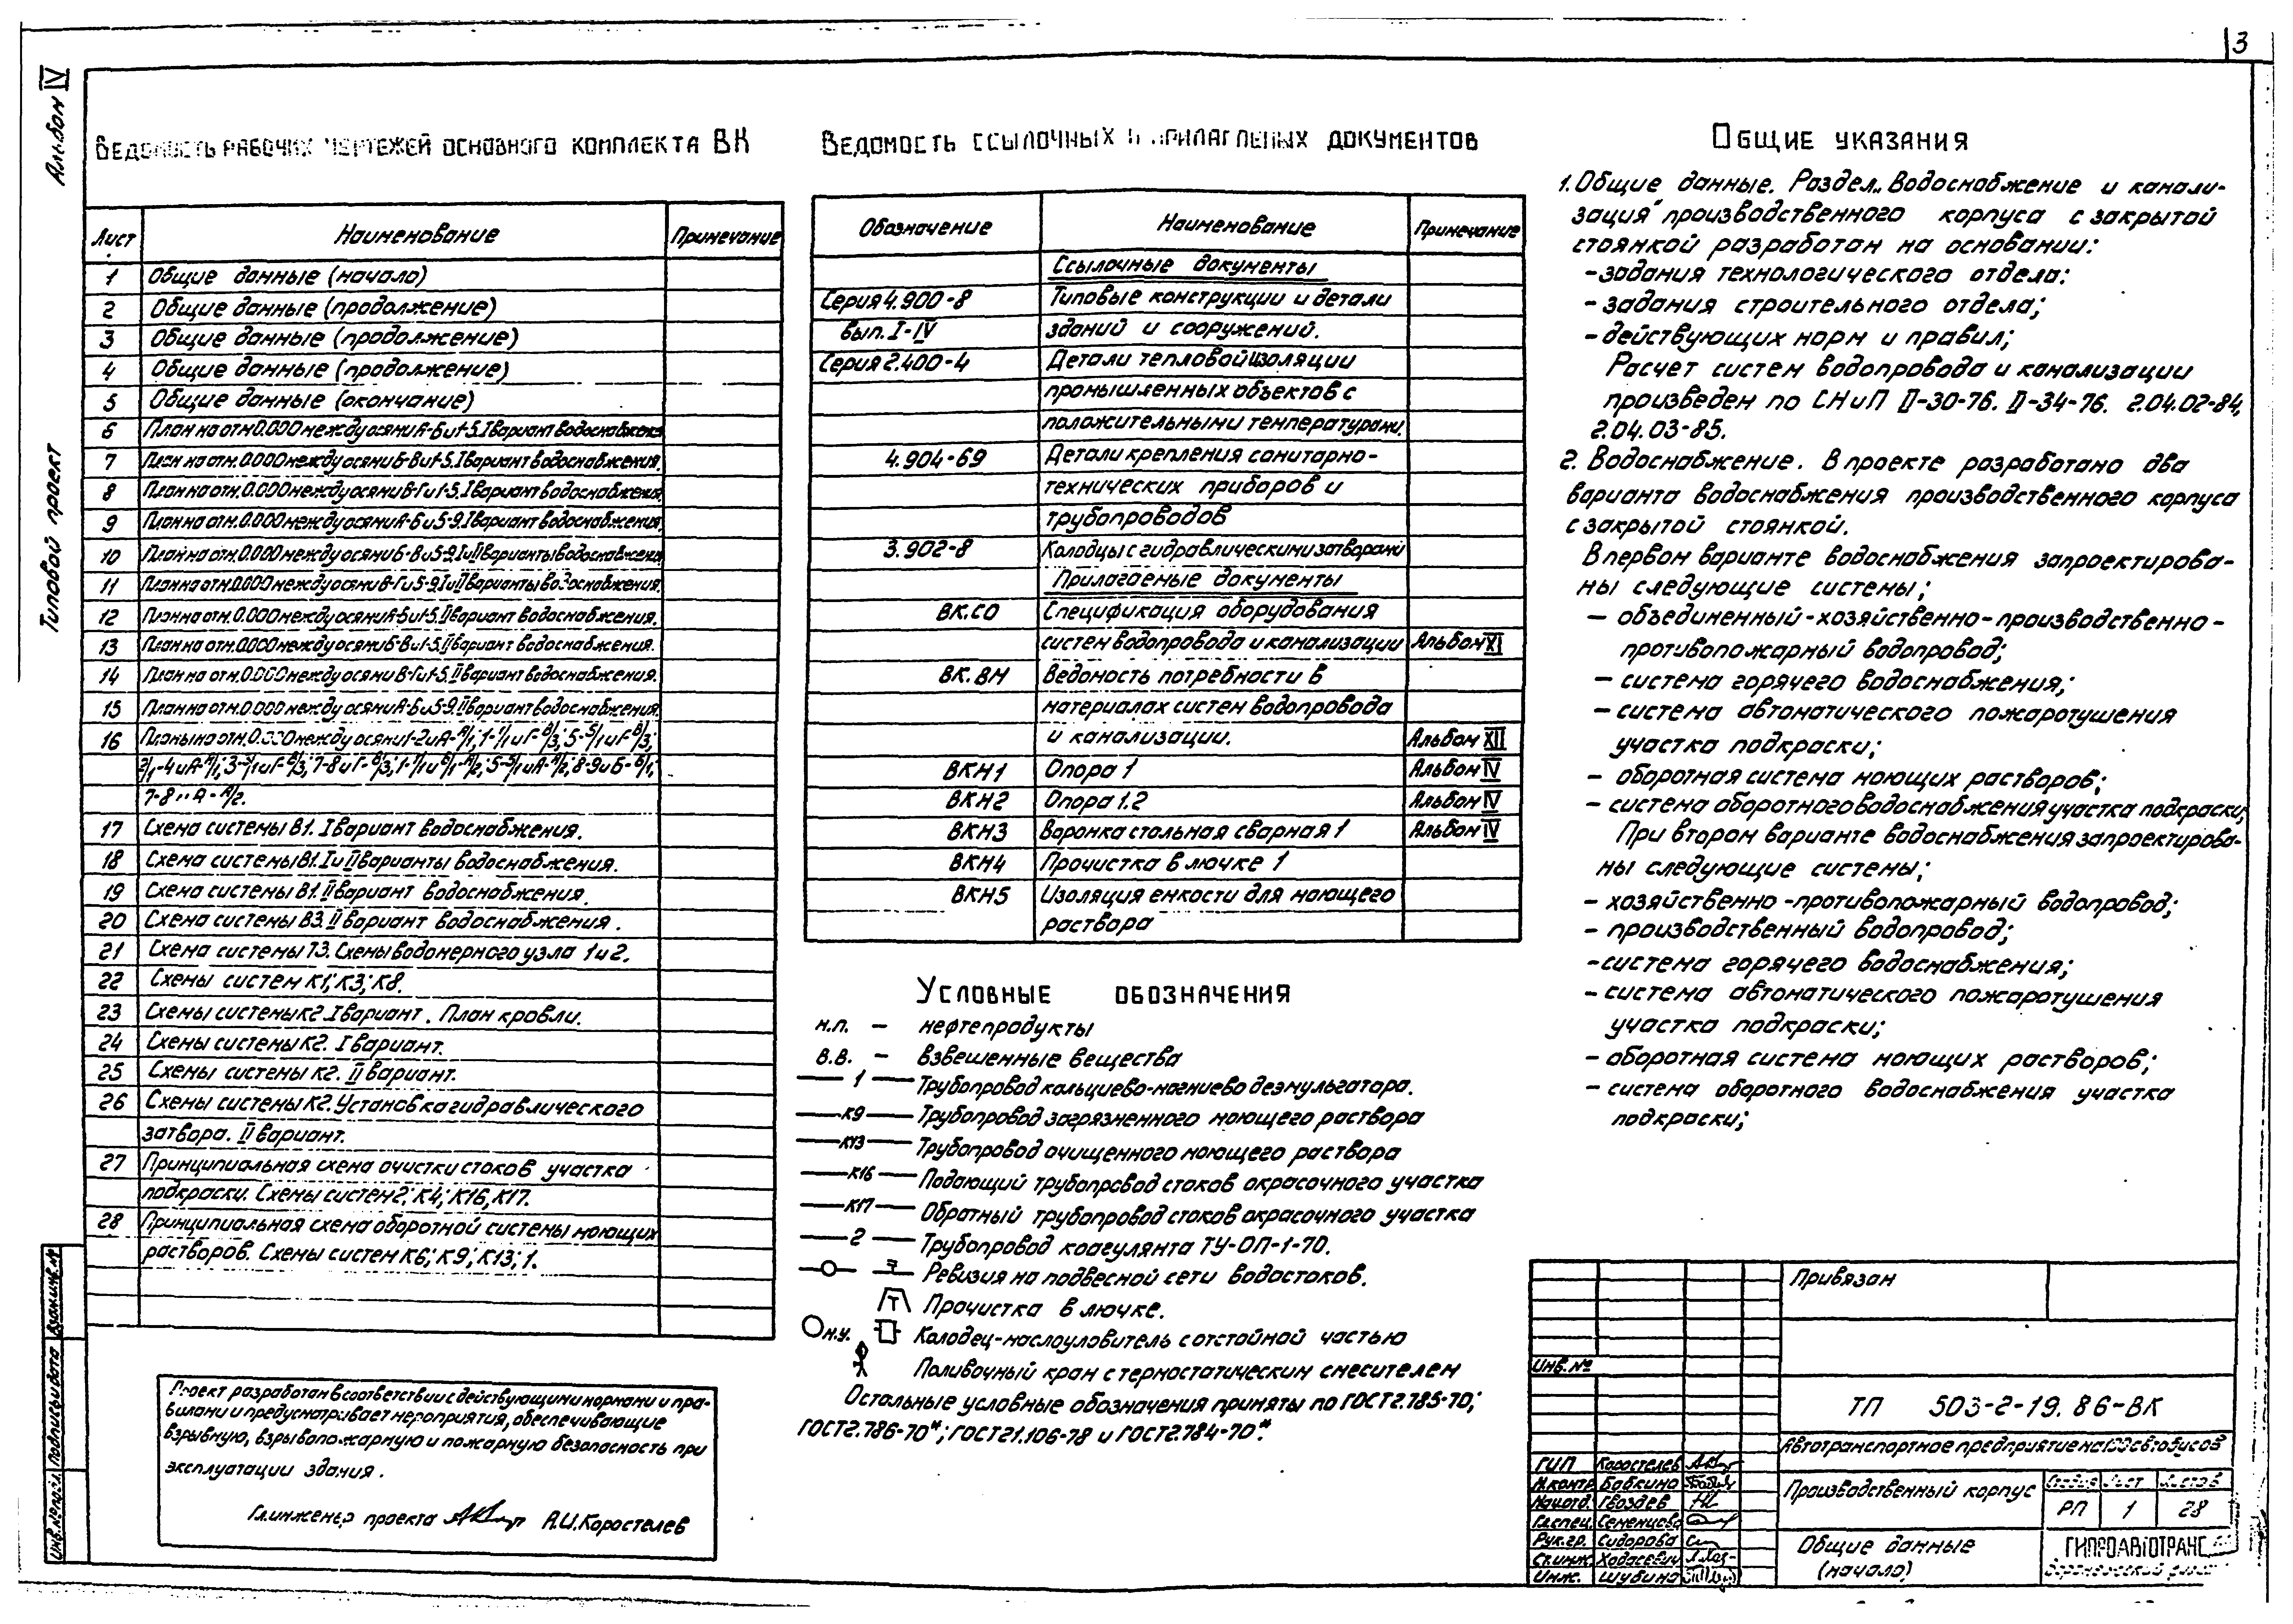 3
Альбом IV
Типовой проект
Ведомость рабочих чертежей основного комплекта ВК
Лист Наименование Примечание
1 Общие данные (начало)
2 Общие данные (продолжение)
3 Общие данные (продолжение)
4 Общие данные (продолжение)
5 Общие данные (окончание)
6 План на отм.0.000 между осями А-Б и 1-5. I вариант водоснабжения
7 План на отм. 0.000 между осями Б-В и 1-5. I вариант водоснабжения.
8 План на отм. 0.000 между осями В-Г и 1-5. I вариант водоснабжения.
9 План на отм. 0.000 между осями А-Б и 5-9. I вариант водоснабжения.
10 План на отм. 0.000 между осями Б-В и 5-9. I и II варианты водоснабжения
11 План на отм. 0.000 между осями В-Г и 5-9. I и II варианты водоснабжения.
12 План на отм. 0.000 между осями А-Б и 1-5. II вариант водоснабжения.
13 План на отм. 0.000 между осями Б-В и 1-5. II вариант водоснабжения.
14 План на отм. 0.000 между осями В-Г и 1-5. II вариант водоснабжения.
15 План на отм. 0.000 между осями А-Б и 5-9. II вариант водоснабжения.
16 Планы на отм. 0.000 между осями 1-2 и А-А/1; 1-1/1 и Г-В/3; 5-5/1 и Г-В/3;
2/1-4 и А-А/1; 3-3/1 и Г-В/3; 7-8 и Г-В/3; 1-1/1 и Б/1-А/2; 5-5/1 и А-А/2; 8-9 и Б-Б/1;
7-8 и А-А/2.
17 Схема системы В1. I вариант водоснабжения.
18 Схема системы В1. I и II варианты водоснабжения.
19 Схема системы В1. II вариант водоснабжения.
20 Схема системы В3. II вариант водоснабжения.
21 Схема системы Т3. Схемы водомерного узла 1 и 2.
22 Схемы систем К1; К3; К8.
23 Схемы системы К2. I вариант. План кровли.
24 Схемы системы К2. I вариант.
25 Схемы системы К2. II вариант.
26 Схемы системы К2. Установка гидравлического
затвора. II вариант.
27 Принципиальная схема очистки стоков участка
подкраски. Схемы систем 2; К4; К16, К17.
28 Принципиальная схема оборотной системы моющих
растворов. Схемы систем К6; К9; К13; 1.
Проект разработан в соответствии с действующими нормами и пра-
вилами и предусматривает мероприятия, обеспечивающие
взрывную, взрывопожарную и пожарную безопасность при
эксплуатации здания.
Гл. инженер проекта А.И. Коростелев
Ведомость ссылочных и прилагаемых документов
Обозначение Наименование Примечание
Ссылочные документы
Серия 4.900-8 Типовые конструкции и детали
вып. I-IV зданий и сооружений.
Серия 2.400-4 Детали тепловой изоляции
промышленных объектов с
положительными температурами.
4.904-69 Детали крепления санитарно-
технических приборов и
трубопроводов
3.902-8 Колодцы с гидравлическими затворами
Прилагаемые документы
ВК.СО Спецификация оборудования
систем водопровода и канализации Альбом XI
ВК.ВМ Ведомость потребности в
материалах систем водопровода
и канализации. Альбом XII
ВКН1 Опора 1 Альбом IV
ВКН2 Опора 1.2 Альбом IV
ВКН3 Воронка стальная сварная 1 Альбом IV
ВКН4 Прочистка в лючке 1
ВКН5 Изоляция емкости для моющего
раствора
Условные обозначения
н.п. – нефтепродукты
в.в. – взвешенные вещества
1 Трубопровод кальциево-магниево деэмульгатора.
К9 Трубопровод загрязненного моющего раствора
К13 Трубопровод очищенного моющего раствора
К16 Подающий трубопровод стоков окрасочного участка
К17 Обратный трубопровод стоков окрасочного участка
2 Трубопровод коагулянта ТУ-ОП-1-70.
Ревизия на подвесной сети водостоков.
Прочистка в лючке.
м.у. Колодец-маслоуловитель с отстойной частью
Поливочный кран с термостатическим смесителем
Остальные условные обозначения приняты по ГОСТ 2.785-70;
ГОСТ 2.786-70*; ГОСТ 21.106-78 и ГОСТ 2.784-70*.
Общие указания
1. Общие данные. Раздел „Водоснабжение и канали-
зация" производственного корпуса с закрытой
стоянкой разработан на основании:
- задания технологического отдела:
- задания строительного отдела;
- действующих норм и правил;
Расчет систем водопровода и канализации
произведен по СНиП II-30-76. II-34-76. 2.04.02-84,
2.04.03-85.
2. Водоснабжение. В проекте разработано два
варианта водоснабжения производственного корпуса
с закрытой стоянкой.
В первом варианте водоснабжения запроектирова-
ны следующие системы;
- объединенный-хозяйственно-производственно-
противопожарный водопровод;
- система горячего водоснабжения;
- система автоматического пожаротушения
участка подкраски;
- оборотная система моющих растворов;
- система оборотного водоснабжения участка подкраски;
При втором варианте водоснабжения запроектирова-
ны следующие системы;
- хозяйственно-противопожарный водопровод;
- производственный водопровод;
- система горячего водоснабжения;
- система автоматического пожаротушения
участка подкраски;
- оборотная система моющих растворов;
- система оборотного водоснабжения участка
подкраски;
Привязан
Инв. №
ТП 503-2-19.86-ВК
Автотранспортное предприятие на автобусов
ГИП Коростелев
Н.контр. Бабкина
Нач.отд. Гвоздев
Гл.спец. Семенцова
Рук.гр. Сидорова
Ст.инж. Ходасевич
Инж. Шубина
Производственный корпус
Стадия Лист Листов
РП 1 28
Общие данные
(начало)
ГИПРОАВТОТРАНС
Инв.№подл. Подпись и дата Взам.инв.№